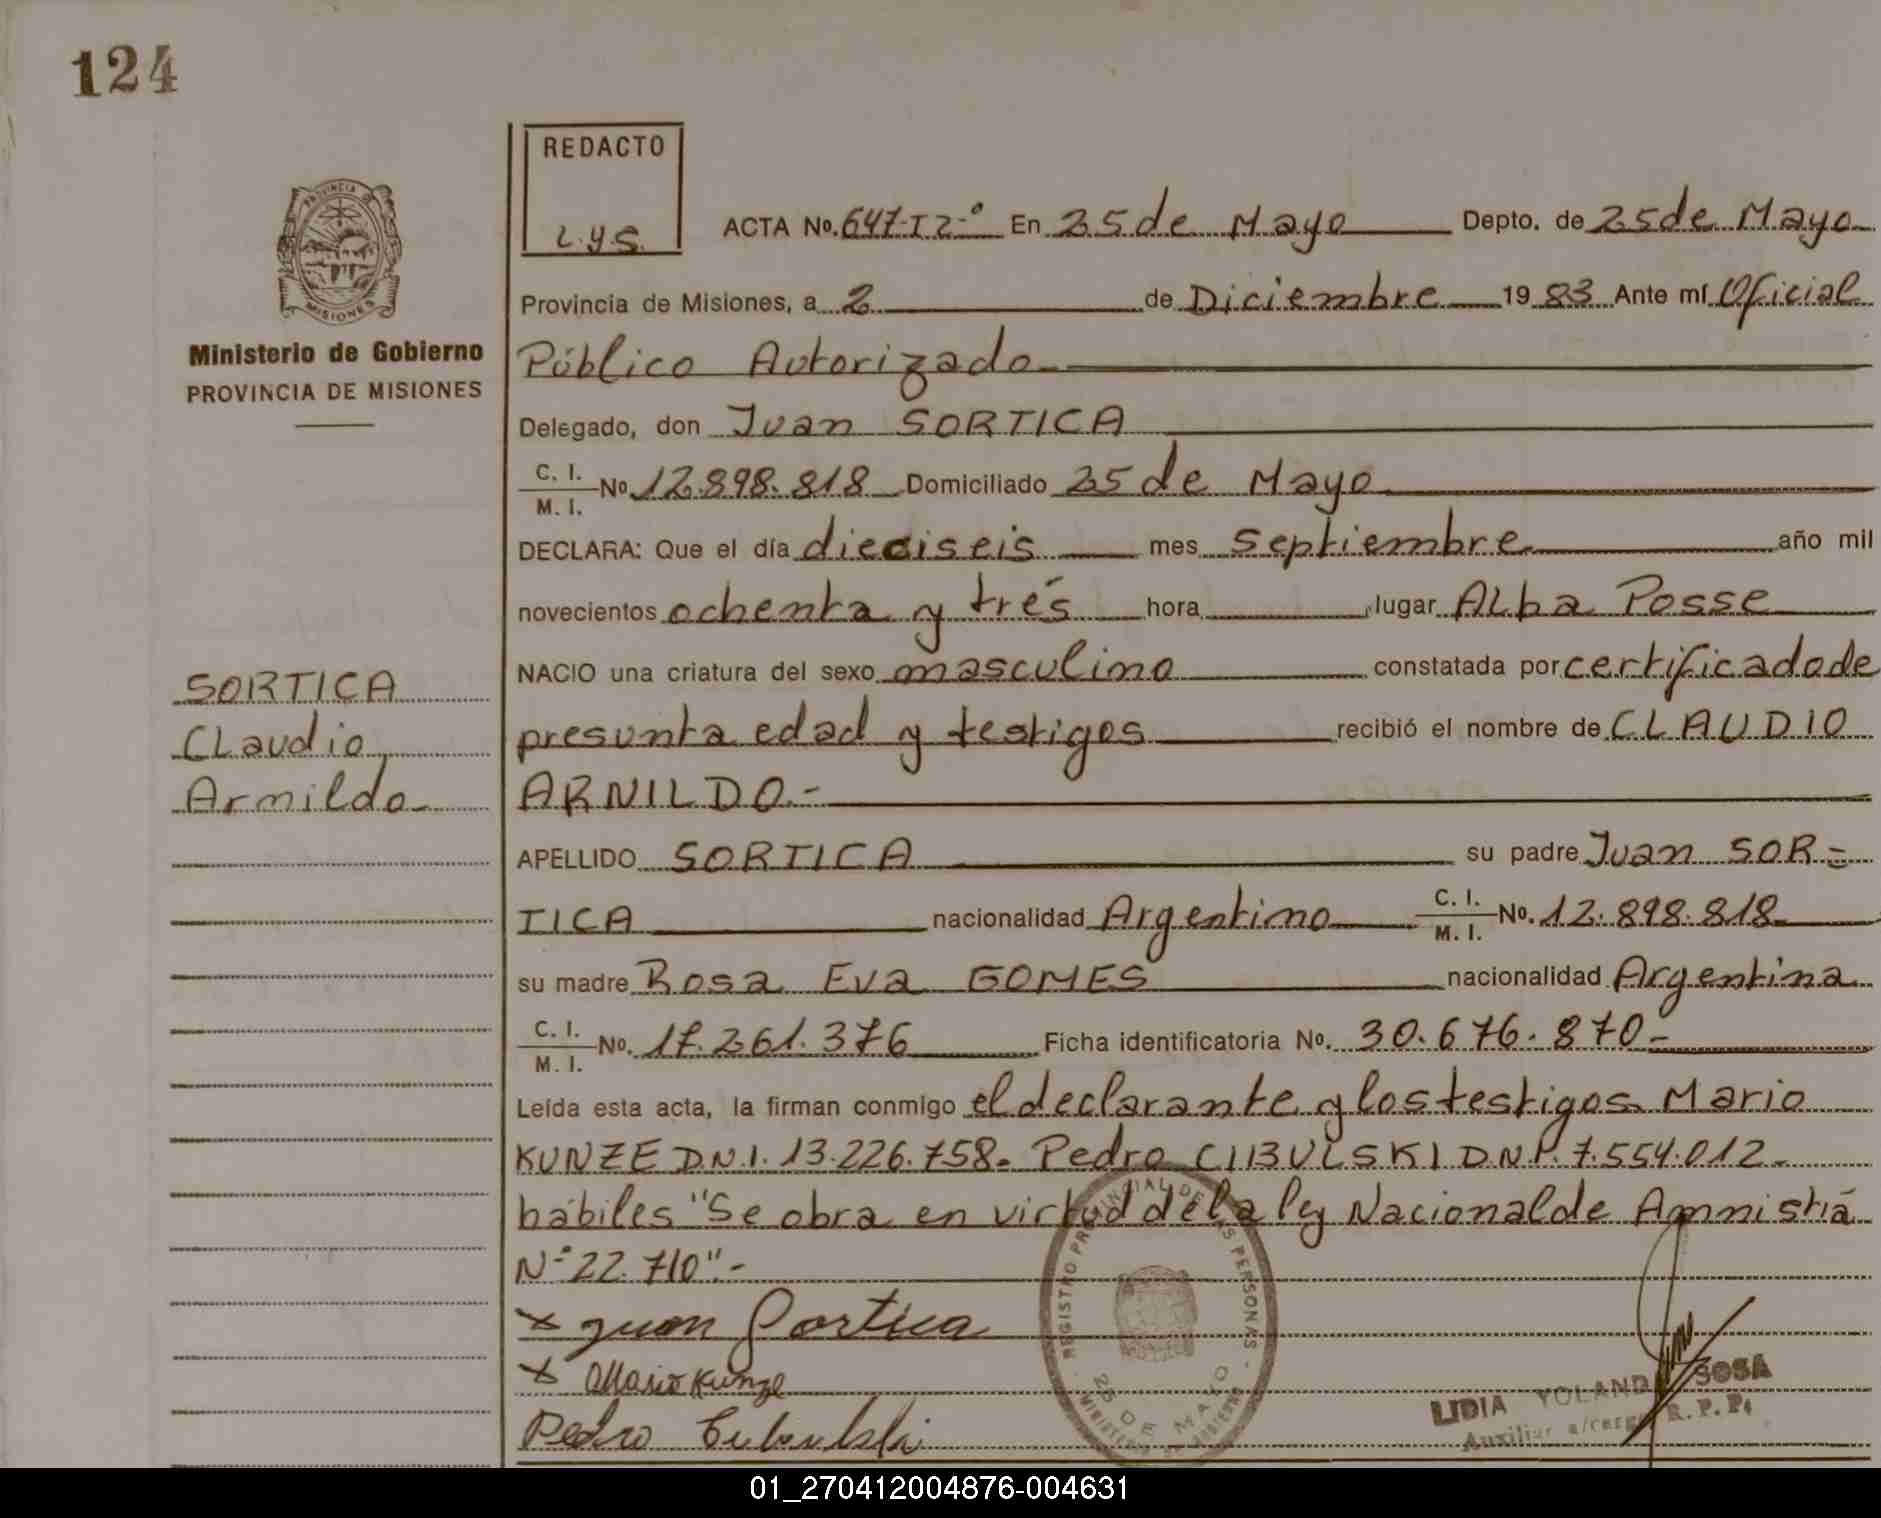 124
REDACTO
L.Y.S.
PROVINCIA
MISIONES
Ministerio de Gobierno
PROVINCIA DE MISIONES
ACTA No. 647-T2-º En 25 de Mayo Depto. de 25 de Mayo
Provincia de Misiones, a 2 de Diciembre 1983 Ante mí Oficial
Público Autorizado
Delegado, don Juan SORTICA
C. I.
M. I. No 12.898.818 Domiciliado 25 de Mayo
DECLARA: Que el día dieciseis mes septiembre año mil
novecientos ochenta y trés hora lugar Alba Posse
NACIO una criatura del sexo masculino constatada por certificado de
presunta edad y testigos recibió el nombre de CLAUDIO
ARNILDO.-
SORTICA
Claudio
Arnildo-
APELLIDO SORTICA su padre Juan SOR=
TICA nacionalidad Argentino C. I.
M. I. No. 12.898.818
su madre Rosa Eva GOMES nacionalidad Argentina
C. I.
M. I. No. 17.261.376 Ficha identificatoria No. 30.676.870-
Leída esta acta, la firman conmigo el declarante y los testigos Mario
KUNZE D.N.I. 13.226.758- Pedro CIBULSKI D.N.I. 7.554.012-
hábiles "Se obra en virtud de la ley Nacional de Amnistiá
Nº 22.710".-
x Juan Sortica
x Mario Kunze
Pedro Cibulski
REGISTRO PROVINCIAL DE LAS PERSONAS
25 DE MAYO
MINISTERIO DE GOBIERNO
LIDIA YOLANDA SOSA
Auxiliar a/cargo R. P. P.
01_270412004876-004631